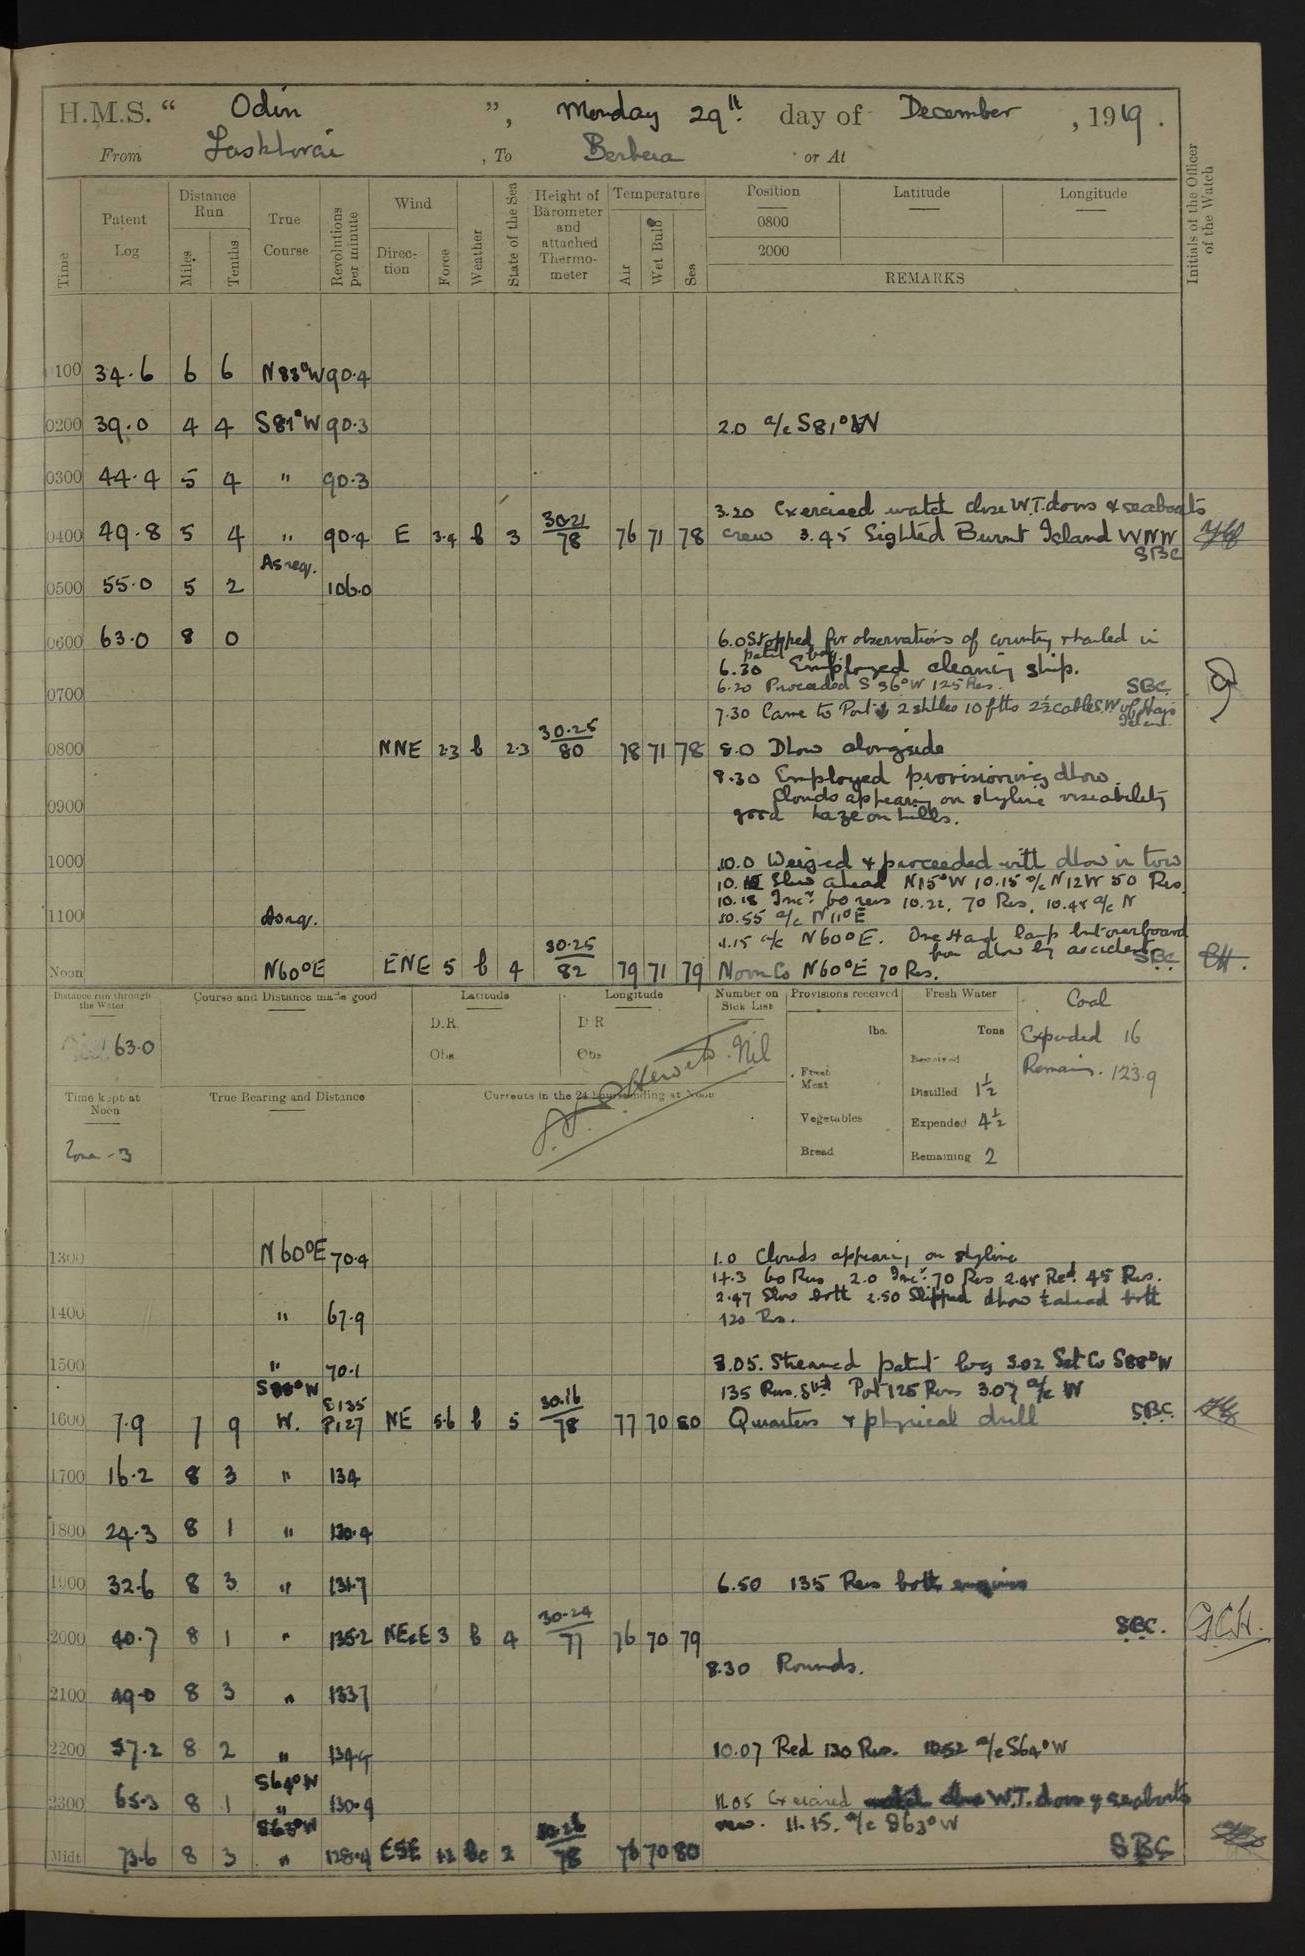 H.M.S. " Odin ", Monday 29th day of December, 1919.
From Laskhorai, To Berbera or At
Time
Patent Log
Distance Run
Miles
Tenths
True Course
Revolutions per minute
Wind
Direction
Force
Weather
State of the Sea
Height of Barometer and attached Thermometer
Temperature
Air
Wet Bulb
Sea
Position
Latitude
Longitude
0800
2000
REMARKS
Initials of the Officer of the Watch
0100 34.6 6 6 N83°W 90.4
0200 39.0 4 4 S81°W 90.3 2.0 a/c S81°W
0300 44.4 5 4 " 90.3
3.20 Exercised watch close W.T. doors & seaboats
0400 49.8 5 4 " 90.4 E 3.4 b 3 30.21/78 76 71 78 crew 3.45 Sighted Burnt Island WNW
SBC
As req.
0500 55.0 5 2 106.0
0600 63.0 8 0 6.0 Stopped for observations of country & hauled in
patent log
6.30 Employed cleaning ship.
6.20 Proceeded S 36°W 125 Revs. SBC
0700
7.30 Came to Port 2 shkles 10 fths 2½ cables W of
Island
0800 NNE 2.3 b 2.3 30.25/80 78 71 78 8.0 Dhow alongside
8.30 Employed provisioning dhow.
Clouds appearing on skyline viseability
0900 good haze on hills.
1000 10.0 Weighed & proceeded with dhow in tow
Slow ahead N15°W 10.15 a/c N12W 50 Revs.
10.18 Incd. 60 revs 10.22, 70 Revs, 10.48 a/c N
1100 As req. 10.55 a/c N11°E
11.15 a/c N60°E. One Hand lamp lost overboard
from dhow by accident SBC
Noon N60°E ENE 5 b 4 30.25/82 79 71 79 Noon Co N60°E 70 Revs.
Distance run through the Water
63.0
Course and Distance made good
Latitude
D.R.
Obs.
Longitude
D R
Obs
Number on Sick List
Nil
Provisions received
lbs.
Fresh Meat
Vegetables
Bread
Fresh Water
Tons
Received
Distilled 1½
Expended 4½
Remaining 2
Coal
Expended 16
Remain. 123.9
Time kept at Noon
Zone -3
True Bearing and Distance
Currents in the 24 hours ending at Noon
1300 N60°E 70.4 1.0 Clouds appearing on skyline
60 Revs 2.0 Incd. 70 Revs 2.45 Red. 45 Revs.
2.47 Slow both 2.50 Slipped dhow ½ ahead both
1400 " 67.9 120 Rs.
1500 " 70.1 3.05. Streamed patent log 3.02 Set Co S88°W
S88°W 135 Revs. Stbd Port 125 Revs 3.07 a/c W
1600 7.9 7 9 W. S135 P127 NE 5.6 b 5 30.16/78 77 70 80 Quarters & physical drill SBC
1700 16.2 8 3 " 134
1800 24.3 8 1 " 130.9
1900 32.6 8 3 " 131.7 6.50 135 Revs both engines
2000 40.7 8 1 " 135.2 NExE 3 b 4 30.24/77 76 70 79 SBC. G.C.H.
8.30 Rounds.
2100 49.0 8 3 " 133.7
2200 57.2 8 2 " 134.4 10.07 Red 130 Revs. 10.52 a/c S64°W
S64°W
2300 65.3 8 1 " 130.9 11.05 Exercised watch close W.T. doors & seaboats
S63°W crew. 11.15. a/c S63°W
Midt 73.6 8 3 " 128.4 ESE 1.2 bc 2 30.26/78 76 70 80 SBC